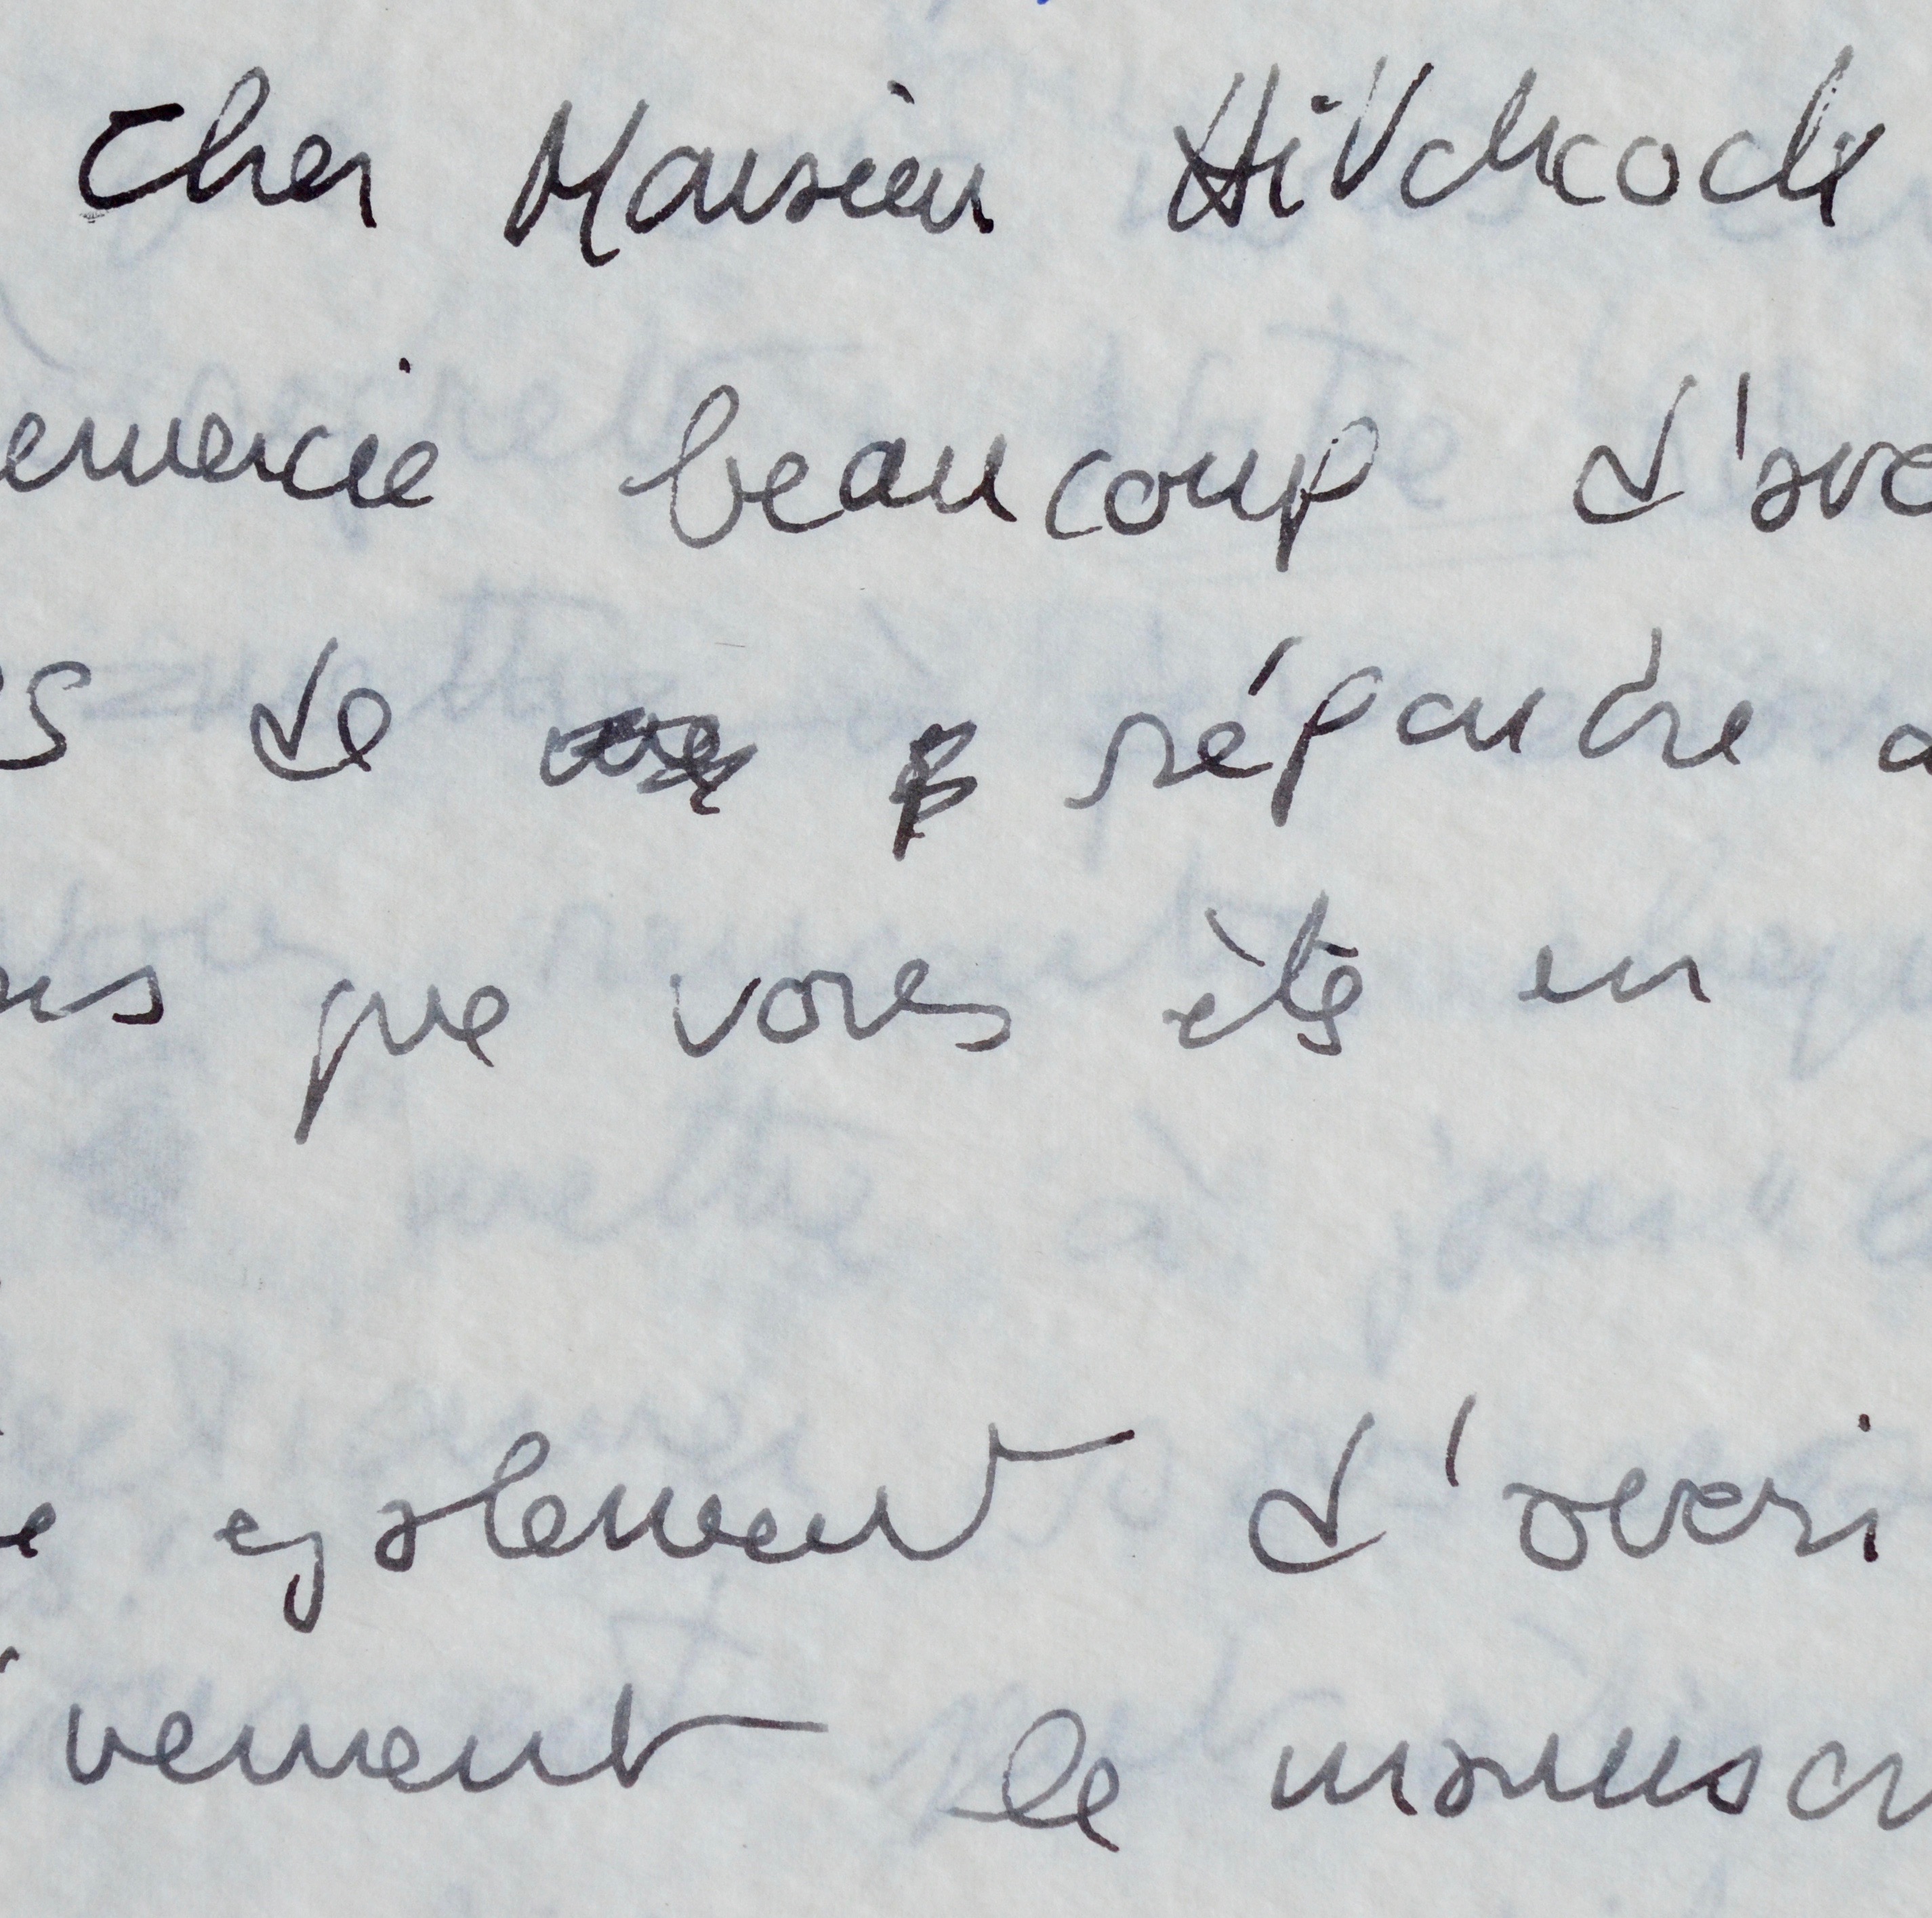 Cher Monsieur Hitchcock
emercie beaucoup d'avo
s de répondre a
que vous étés en
également d'avoi
vement le manuscr